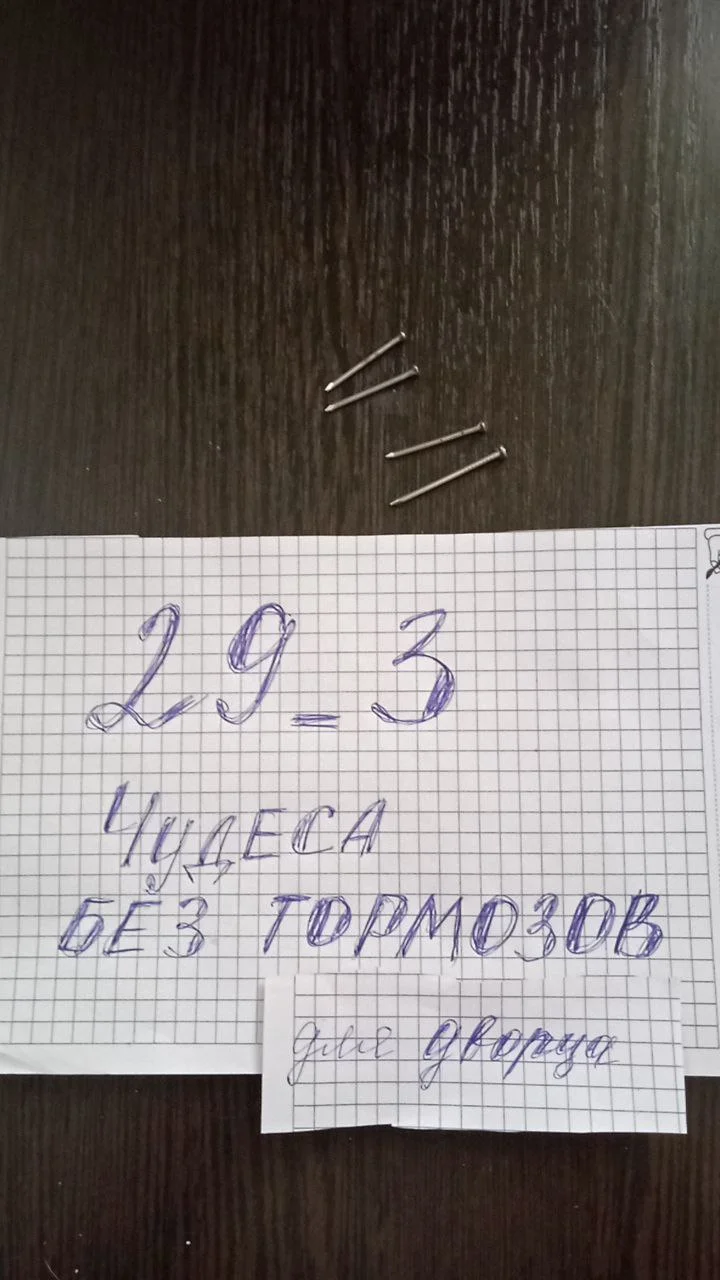 29_3
ЧУДЕСА
БЕЗ ТОРМОЗОВ
для дворца